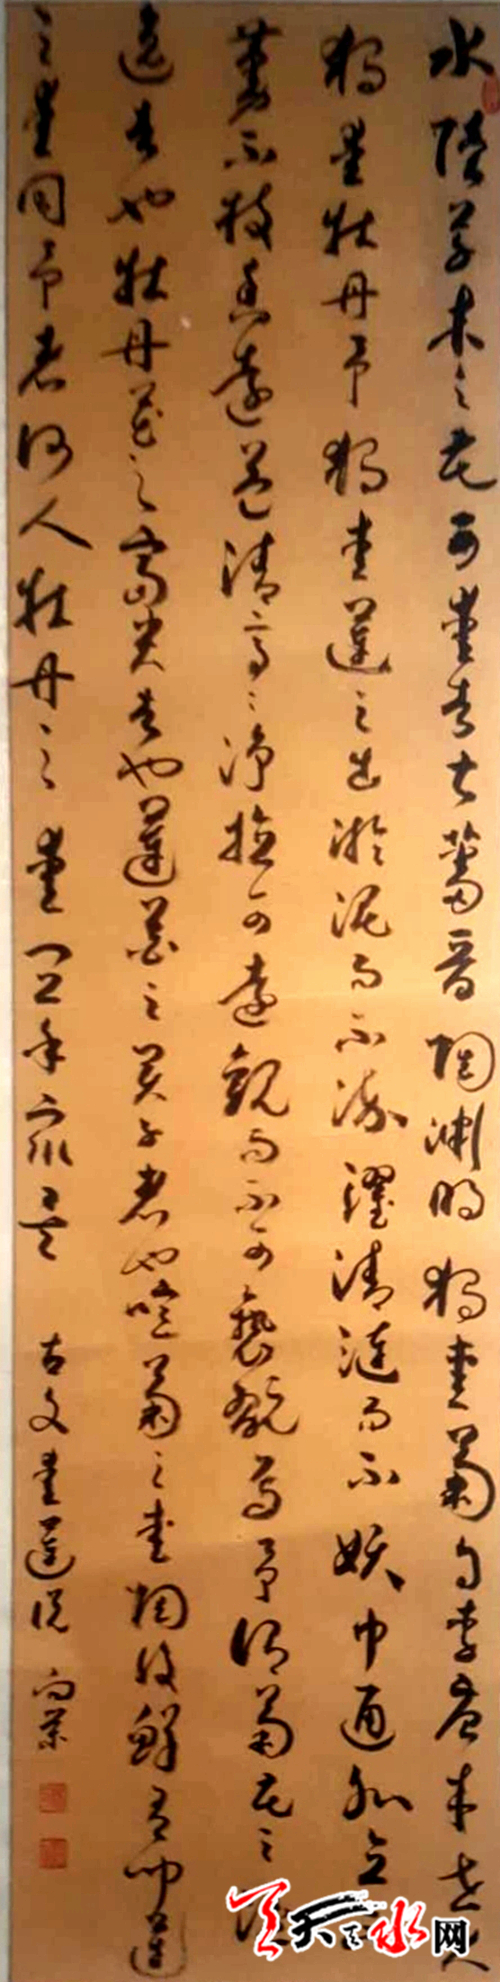 水陸草木之花可愛者甚蕃晉陶淵明獨愛菊自李唐來世人
獨愛牡丹予獨愛蓮之出淤泥而不染濯清漣而不妖中通外直不
蔓不枝香遠益清亭亭淨植可遠觀而不可褻翫焉予謂菊花之隱
逸者也牡丹花之富貴者也蓮花之君子者也噫菊之愛陶後鮮有聞蓮
之愛同予者何人牡丹之愛宜乎眾矣 古文愛蓮說
天天天水网